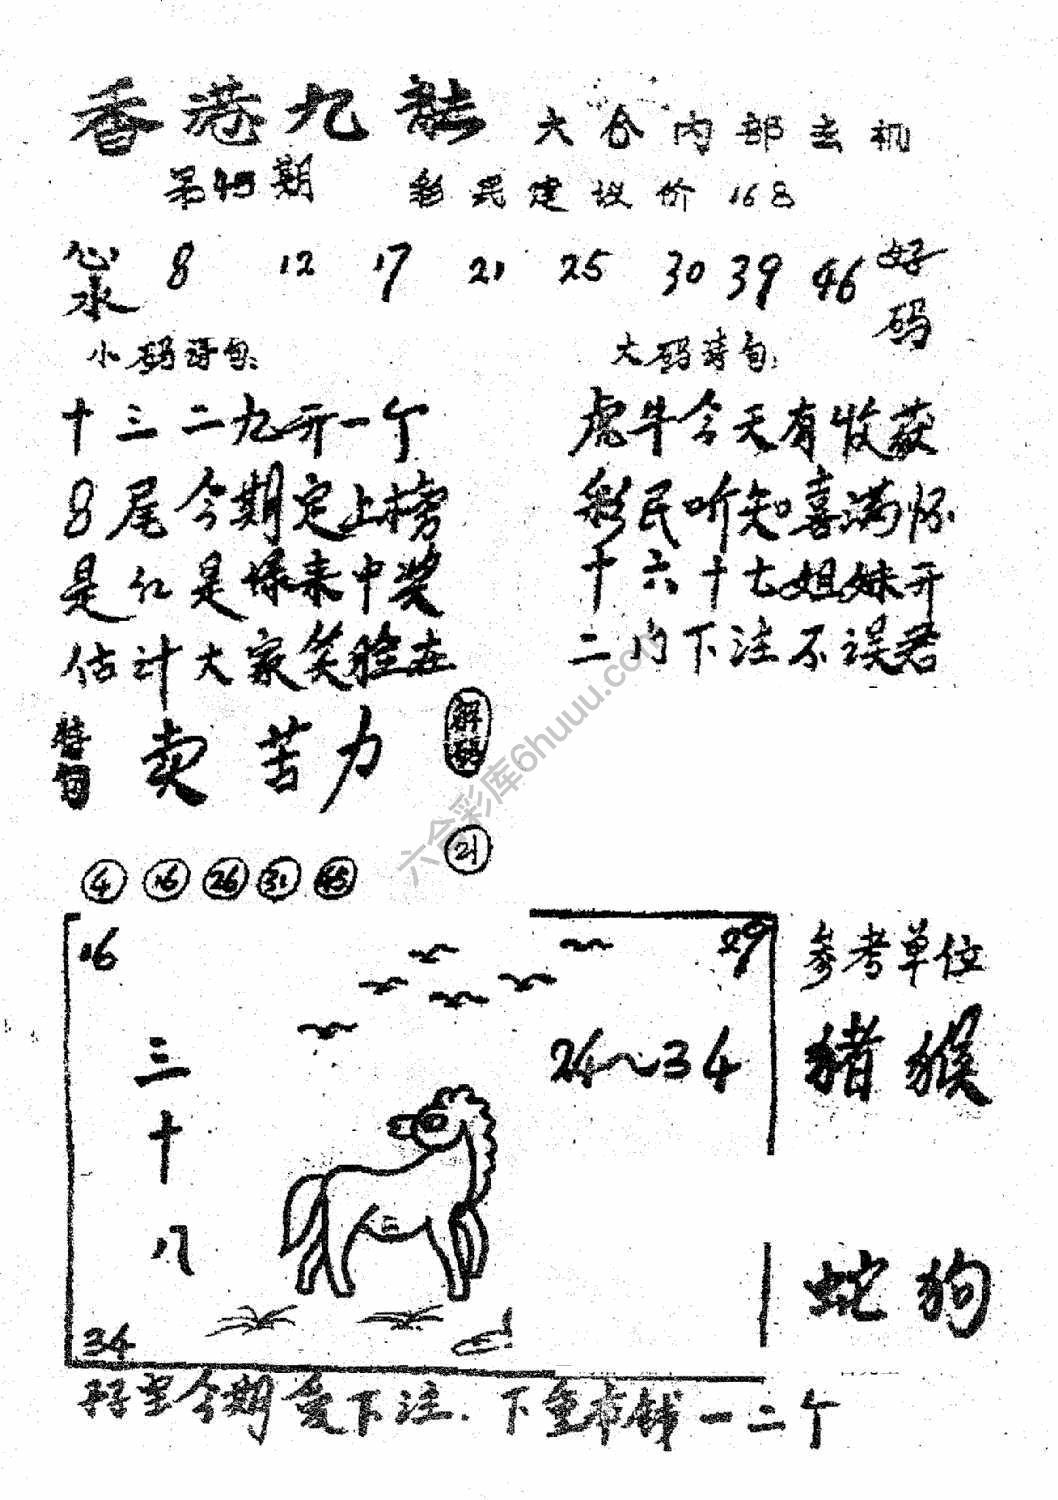 香港九龙 六合内部玄机
第45期 彩民建议价168
心水 8 12 17 21 25 30 39 46 好码
小码诗句: 大码诗句:
十三二九开一个 虎牛今天有收获
8尾今期定上榜 彩民听知喜满怀
是红是绿来中奖 十六十七姐妹开
估计大家笑脸在 二门下注不误君
特句 卖苦力 解码
21
4 16 26 31 45
16 29 参考单位
三十八 24~34 猪猴
三
蛇狗
34
今期 下注.下重本钱一二个
六合彩库6huuu.com